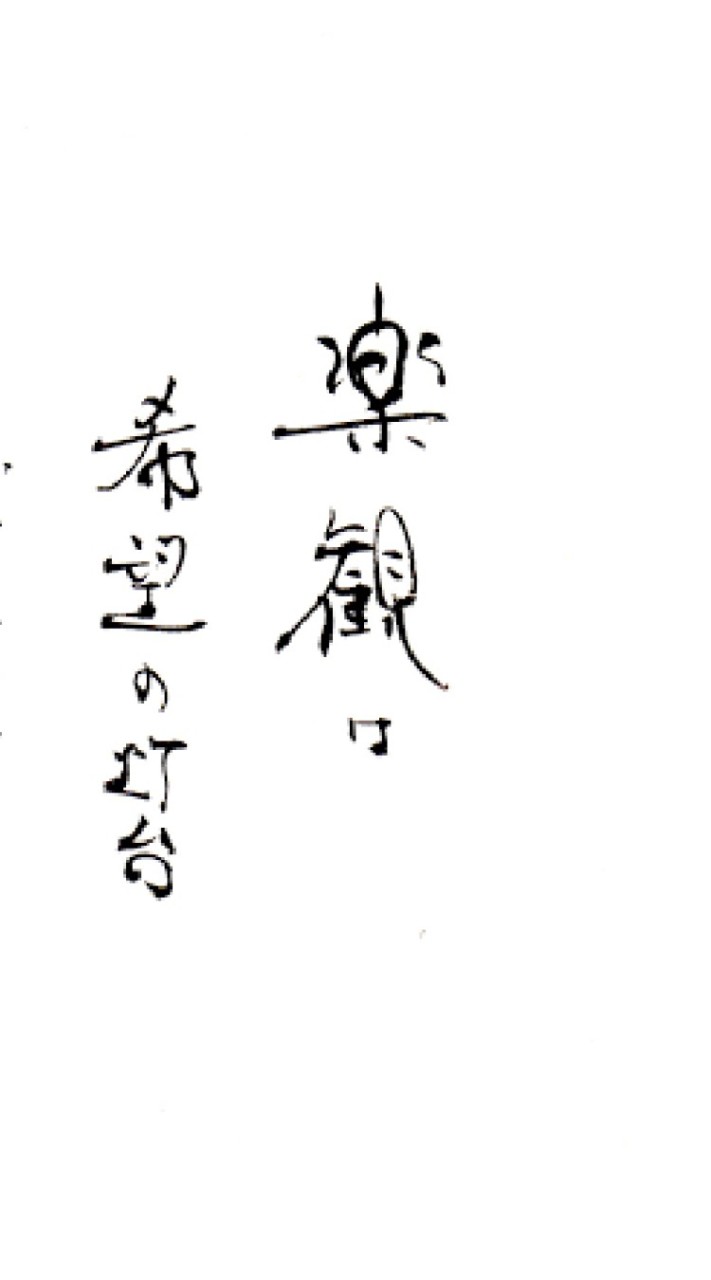 楽観は
希望の灯台